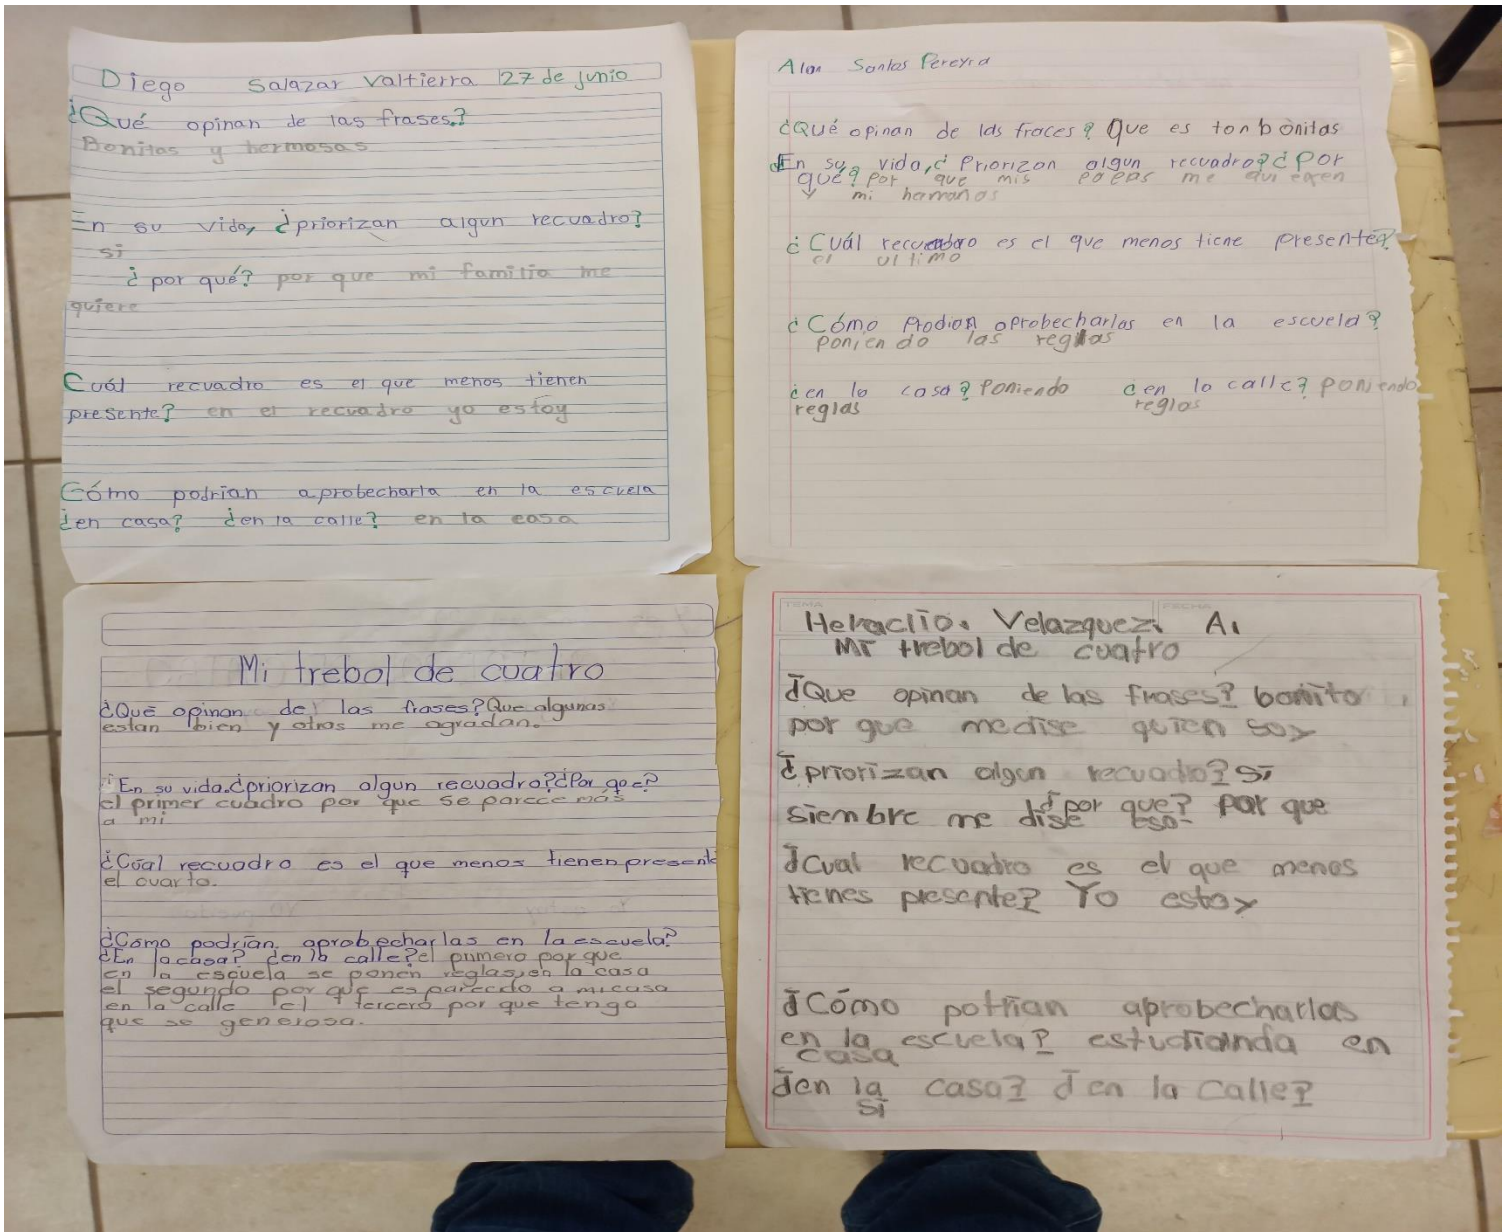 Diego Salazar Valtierra 27 de junio
¿Qué opinan de las frases?
Bonitas y hermosas
En su vida, ¿priorizan algun recuadro?
si
¿por qué? por que mi familia me
quiere
Cuál recuadro es el que menos tienen
presente? en el recuadro yo estoy
Cómo podrian aprobecharla en la escuela
¿en casa? ¿en la calle? en la casa
Alan Santos Pereyra
¿Qué opinan de las fraces? Que es tan bonitas
En su vida, ¿Priorizan algun recuadro? ¿Por
qué? por que mis me quieren
y mi hermanos
¿Cuál es el que menos tiene presente?
el ultimo
¿Cómo aprobecharlas en la escuela?
poniendo las reglas
¿en la casa? Poniendo ¿en la calle? poniendo
reglas reglas
Mi trebol de cuatro
¿Que opinan de las frases? Que algunas
estan bien y otras me agradan.
En su vida. ¿priorizan algun recuadro? ¿Por que?
el primer cuadro por que se parece más
a mi
¿Cual recuadro es el que menos tienen present
el cuarto.
¿Como podrian aprobecharlas en la escuela?
¿En la casa? ¿en la calle? el primero por que
en la escuela se ponen reglas, en la casa
el segundo por que es parecido a mi casa
en la calle el tercero por que tengo
que se generosa.
TEMA FECHA
Heraclio. Velazquez. A.
Mi trebol de cuatro
¿Que opinan de las frases? bonito
por que me dise quien soy
¿priorizan algun recuadro? Si
¿por que? por que
siembre me dise eso
¿Cual recuadro es el que menos
tienes presente? Yo estoy
¿Cómo potrian aprobecharlas
en la escuela? estudianda en
casa
¿en la casa? ¿en la calle?
Si